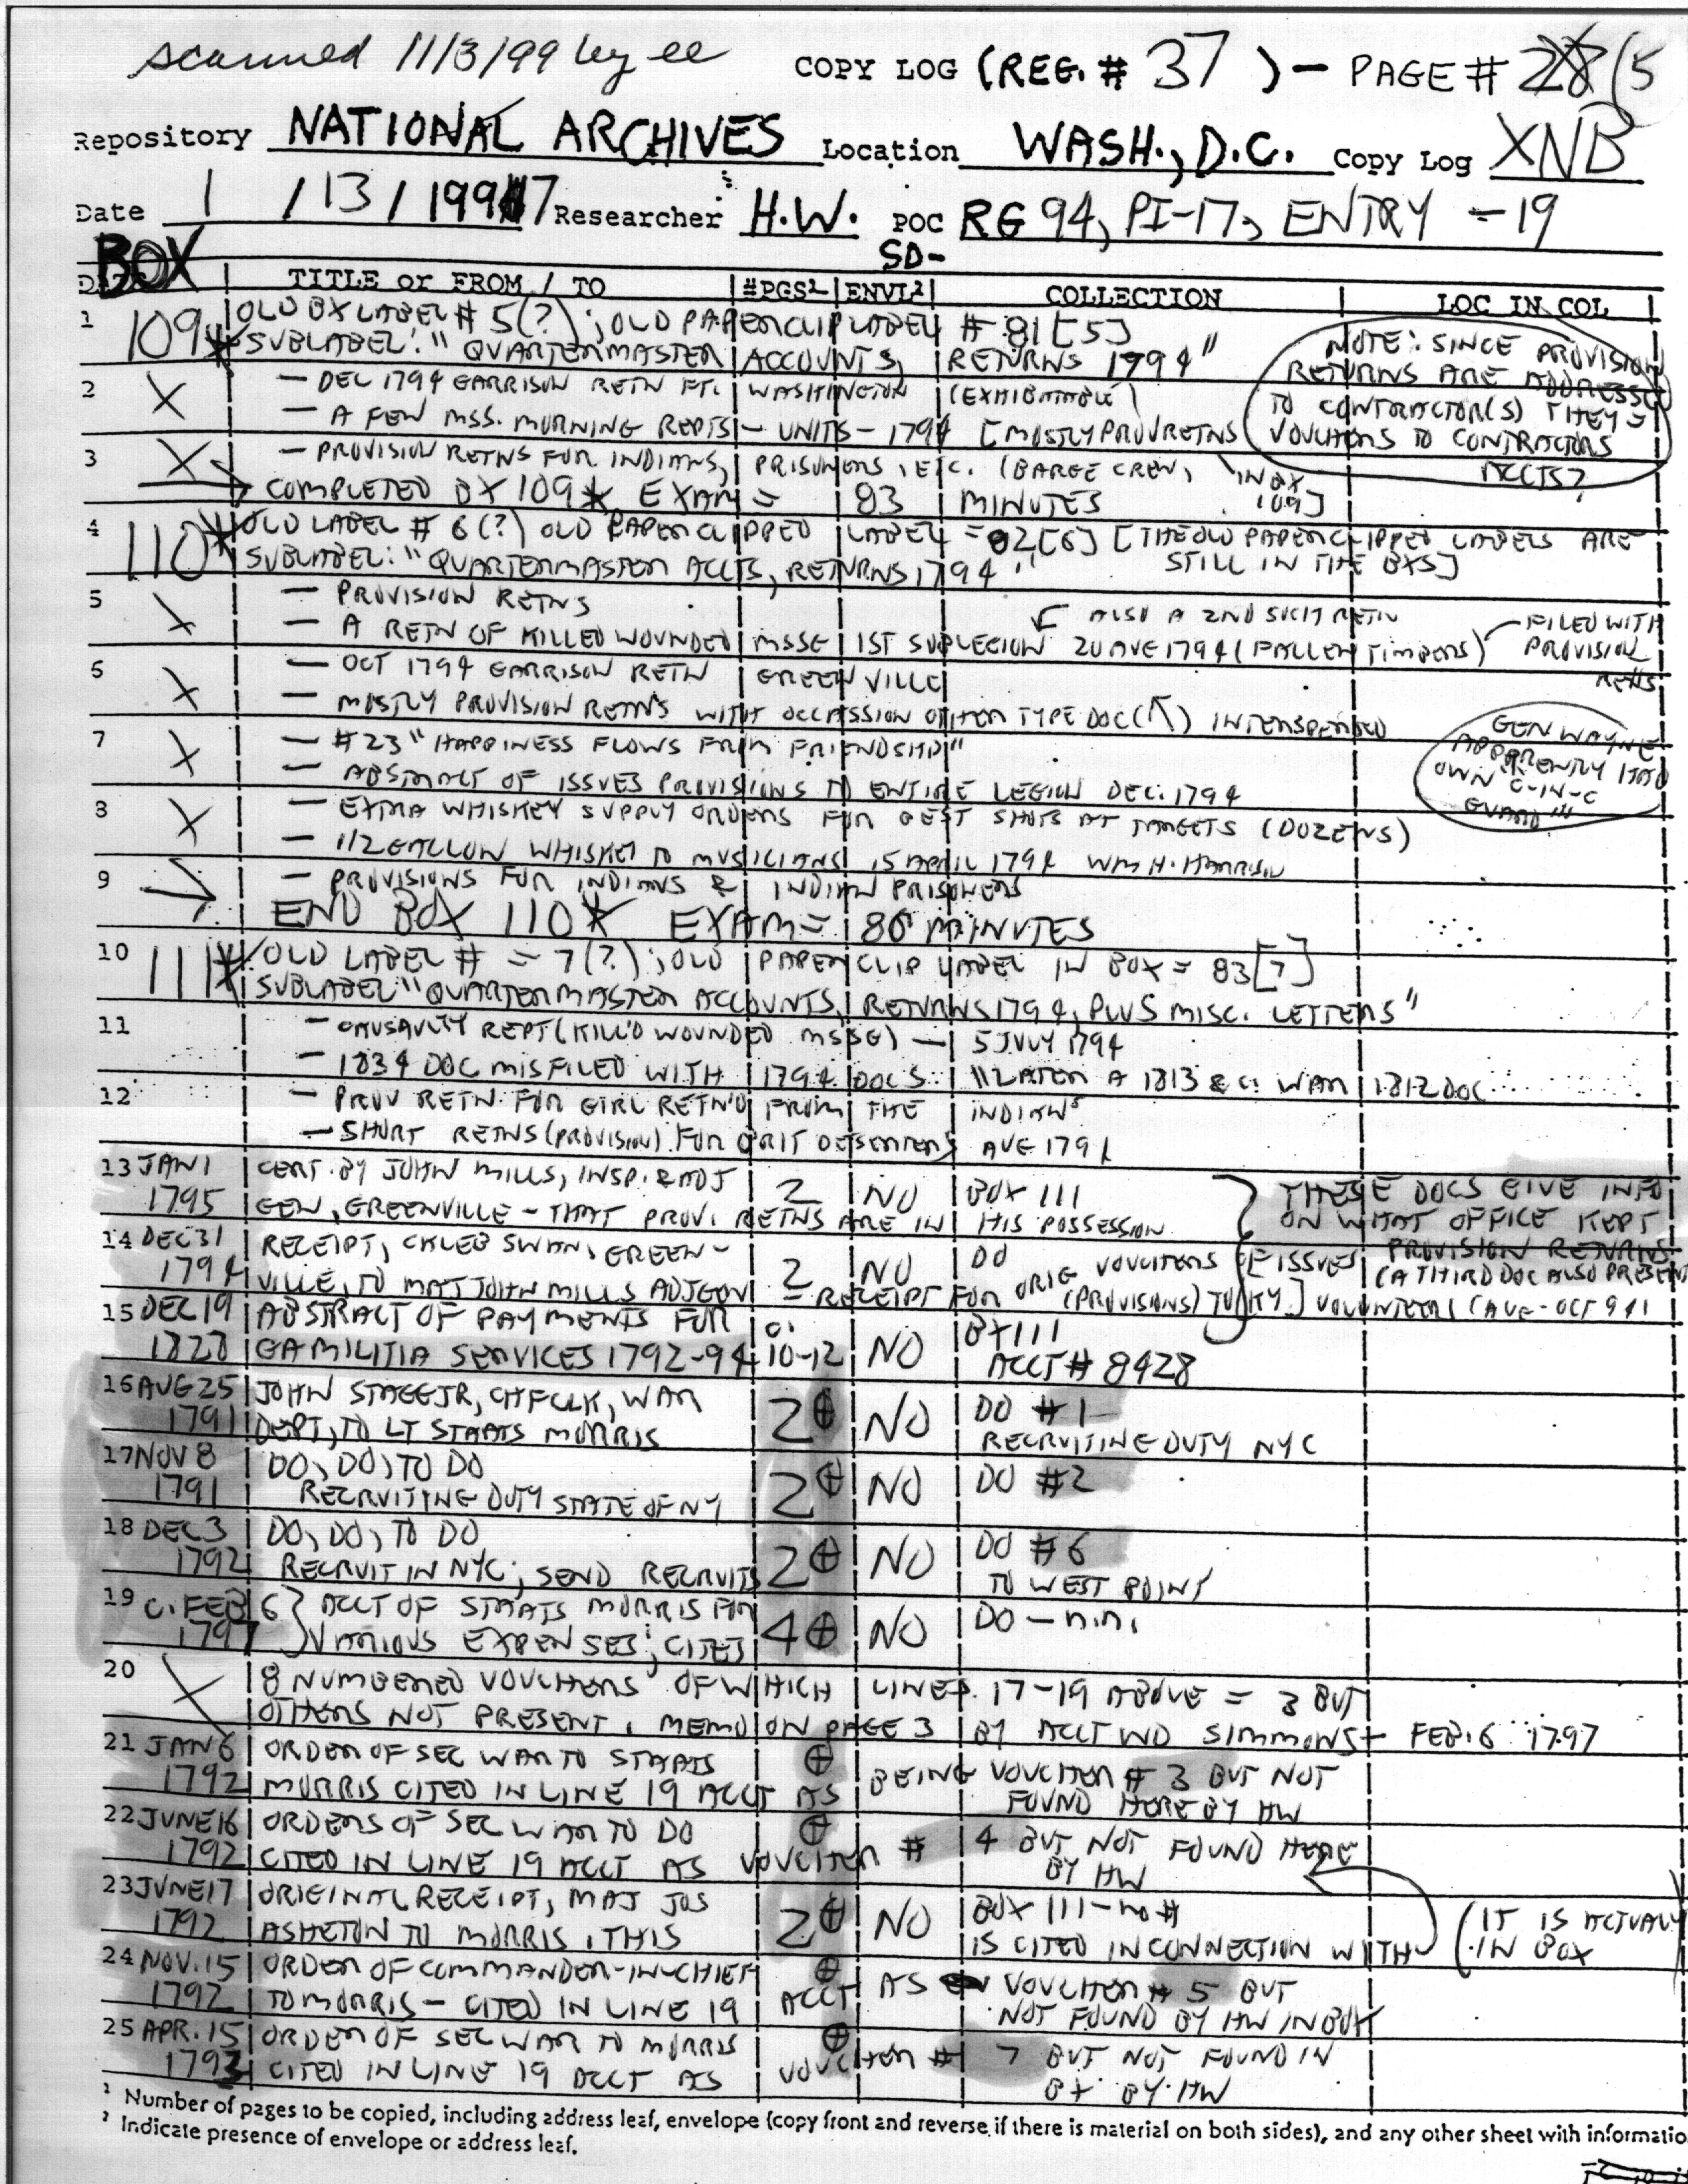 scanned 11/3/99 by ee
COPY LOG (REG. # 37 ) - PAGE # 28 (5
Repository NATIONAL ARCHIVES Location WASH., D.C. Copy Log XNB
Date 1 / 13 / 1997 Researcher H.W. POC RG 94, PI-17, ENTRY - 19
BOX SD-
TITLE or FROM / TO #PGS² ENVL² COLLECTION LOC IN COL
1 109* OLD BX LABEL # 5(?); OLD PAPERCLIP LABEL # 81[5]
SUBLABEL: "QUARTERMASTER ACCOUNTS, RETURNS 1794"
NOTE: SINCE PROVISION
RETURNS ARE ADDRESSED
TO CONTRACTOR(S) THEY =
VOUCHERS TO CONTRACTORS
ACCTS?
2 X - DEC 1794 GARRISON RETN FT. WASHINGTON (EXHIBITABLE)
- A FEW MSS. MORNING REPTS - UNITS - 1794 [MOSTLY PROV RETNS
IN BX
109]
3 X - PROVISION RETNS FOR INDIANS, PRISONERS, ETC. (BARGE CREW,
COMPLETED BX 109* EXAM = 83 MINUTES
4 110* OLD LABEL # 6(?) OLD PAPERCLIPPED LABEL = 82[6] [THE OLD PAPERCLIPPED LABELS ARE
STILL IN THE BXS]
SUBLABEL: "QUARTERMASTER ACCTS, RETURNS 1794"
5 X - PROVISION RETNS
ALSO A 2ND SUCH RETN
- A RETN OF KILLED WOUNDED MSSG 1ST SUBLEGION 20 AUG 1794 (FALLEN TIMBERS)
FILED WITH
PROVISION
RETNS
6 X - OCT 1794 GARRISON RETN GREENVILLE
- MOSTLY PROVISION RETNS WITH OCCASSION OTHER TYPE DOC (↖) INTERSPERSED
7 X - #23 "HAPPINESS FLOWS FROM FRIENDSHIP"
- ABSTRACT OF ISSUES PROVISIONS TO ENTIRE LEGION DEC. 1794
GEN WAYNE
APPARENTLY HAD
OWN "C-IN-C
GUARD"
8 X - EXTRA WHISKEY SUPPLY ORDERS FOR BEST SHOTS AT TARGETS (DOZENS)
- 1/2 GALLON WHISKEY TO MUSICIANS 15 APRIL 1794 WM H. HARRISON
9 - PROVISIONS FOR INDIANS & INDIAN PRISONERS
END BOX 110* EXAM = 86 MINUTES
10 111* OLD LABEL # = 7(?); OLD PAPERCLIP LABEL IN BOX = 83[7]
SUBLABEL "QUARTERMASTER ACCOUNTS, RETURNS 1794, PLUS MISC. LETTERS"
11 - CAUSAULTY REPT (KILL'D WOUNDED MSSG) - 5 JULY 1794
- 1834 DOC MISFILED WITH 1794 DOCS "LATER A 1813 & C. WAR 1812 DOC
12 - PROV RETN FOR GIRL RETN'D FROM THE INDIANS
- SHORT RETNS (PROVISION) FOR BRIT DESERTERS AUG 1794
13 JAN 1 CERT. BY JOHN MILLS, INSP. & ADJ 2 NO BOX 111
1795 GEN, GREENVILLE - THAT PROV. RETNS ARE IN HIS POSSESSION
THESE DOCS GIVE INFO
ON WHAT OFFICE KEPT
PROVISION RETURNS
(A THIRD DOC ALSO PRESENT
14 DEC 31 RECEIPT, CALEB SWAN, GREEN- 2 NO DO
1794 VILLE, TO MAJ JOHN MILLS ADJ GEN = RECEIPT FOR ORIG VOUCHERS [ISSUES (PROVISIONS) TO KY.] VOLUNTEERS (AUG-OCT 94)
15 DEC 19 ABSTRACT OF PAYMENTS FOR C. 10-12 NO BX 111
1828 GA MILITIA SERVICES 1792-94 ACCT # 8428
16 AUG 25 JOHN STAGG JR, CHF CLK, WAR 2⊕ NO DO #1
1791 DEPT, TO LT STAATS MORRIS RECRUITING DUTY NYC
17 NOV 8 DO, DO, TO DO 2⊕ NO DO #2
1791 RECRUITING DUTY STATE OF NY
18 DEC 3 DO, DO, TO DO 2⊕ NO DO #6
1792 RECRUIT IN NYC; SEND RECRUITS TO WEST POINT
19 C. FEB 6 ACCT OF STAATS MORRIS FOR 4⊕ NO DO - n.n.
1797 VARIOUS EXPENSES; CITES
20 X 8 NUMBERED VOUCHERS OF WHICH LINES 17-19 ABOVE = 3 BUT
OTHERS NOT PRESENT. MEMO ON PAGE 3 BY ACCT WD SIMMONS - FEB. 6 1797
21 JAN 6 ORDER OF SEC WAR TO STAATS ⊕
1792 MORRIS CITED IN LINE 19 ACCT AS BEING VOUCHER # 3 BUT NOT
FOUND HERE BY HW
22 JUNE 16 ORDERS OF SEC WAR TO DO ⊕
1792 CITED IN LINE 19 ACCT AS VOUCHER # 4 BUT NOT FOUND HERE
BY HW
23 JUNE 17 ORIGINAL RECEIPT, MAJ JOS 2⊕ NO BOX 111 - no #
1792 ASHETON TO MORRIS. THIS IS CITED IN CONNECTION WITH
(IT IS ACTUALLY
IN BOX
24 NOV. 15 ORDER OF COMMANDER-IN-CHIEF ⊕
1792 TO MORRIS - CITED IN LINE 19 ACCT AS VOUCHER # 5 BUT
NOT FOUND BY HW IN BOX
25 APR. 15 ORDER OF SEC WAR TO MORRIS ⊕
1793 CITED IN LINE 19 ACCT AS VOUCHER # 7 BUT NOT FOUND IN
BX BY HW
¹ Number of pages to be copied, including address leaf, envelope (copy front and reverse if there is material on both sides), and any other sheet with informatio
² Indicate presence of envelope or address leaf.